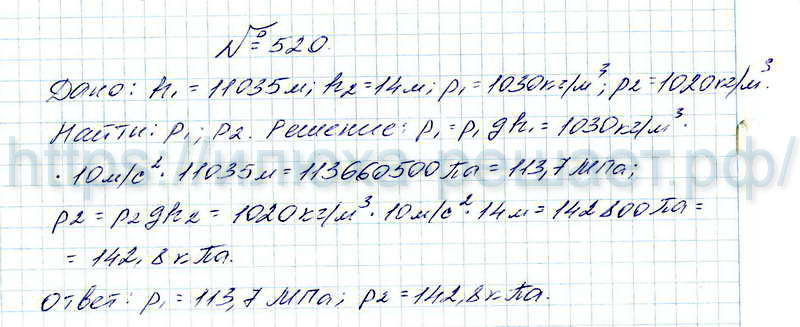 № 520.
Дано: h₁ = 11035 м; h₂ = 14 м; ρ₁ = 1030 кг/м³; ρ₂ = 1020 кг/м³.
Найти: p₁; p₂. Решение: p₁ = ρ₁gh₁ = 1030 кг/м³ ·
· 10 м/с² · 11035 м = 113660500 Па = 113,7 МПа;
p₂ = ρ₂gh₂ = 1020 кг/м³ · 10 м/с² · 14 м = 142800 Па =
= 142,8 кПа.
Ответ: p₁ = 113,7 МПа; p₂ = 142,8 кПа.